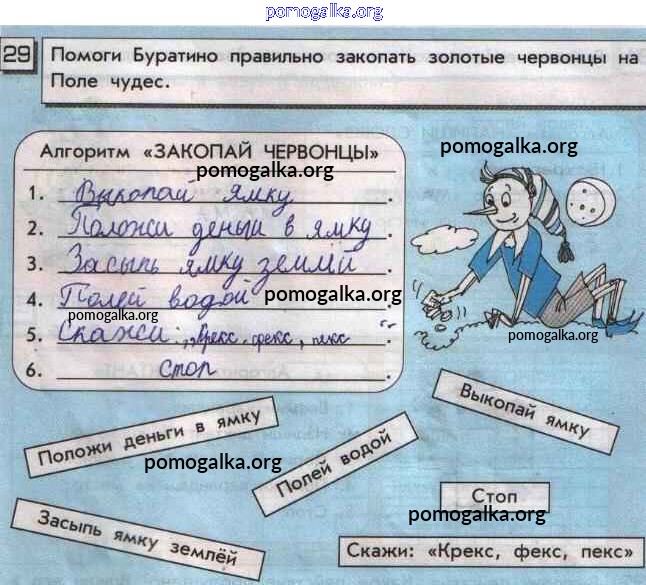 pomogalka.org
29 Помоги Буратино правильно закопать золотые червонцы на
Поле чудес.
Алгоритм «ЗАКОПАЙ ЧЕРВОНЦЫ»
pomogalka.org
pomogalka.org
1. Выкопай ямку.
2. Положи деньги в ямку.
pomogalka.org
3. Засыпь ямку землёй.
4. Полей водой.
pomogalka.org
5. Скажи: „Крекс, фекс, пекс“.
pomogalka.org
pomogalka.org
6. Стоп.
Выкопай ямку
Положи деньги в ямку
Полей водой
pomogalka.org
Стоп
pomogalka.org
Засыпь ямку землёй
Скажи: «Крекс, фекс, пекс»